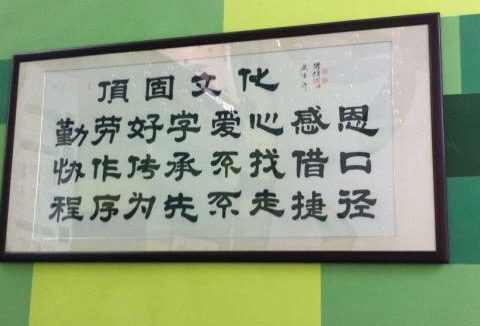 頂固文化
勤劳好学爱心感恩
协作传承不找借口
程序为先不走捷径